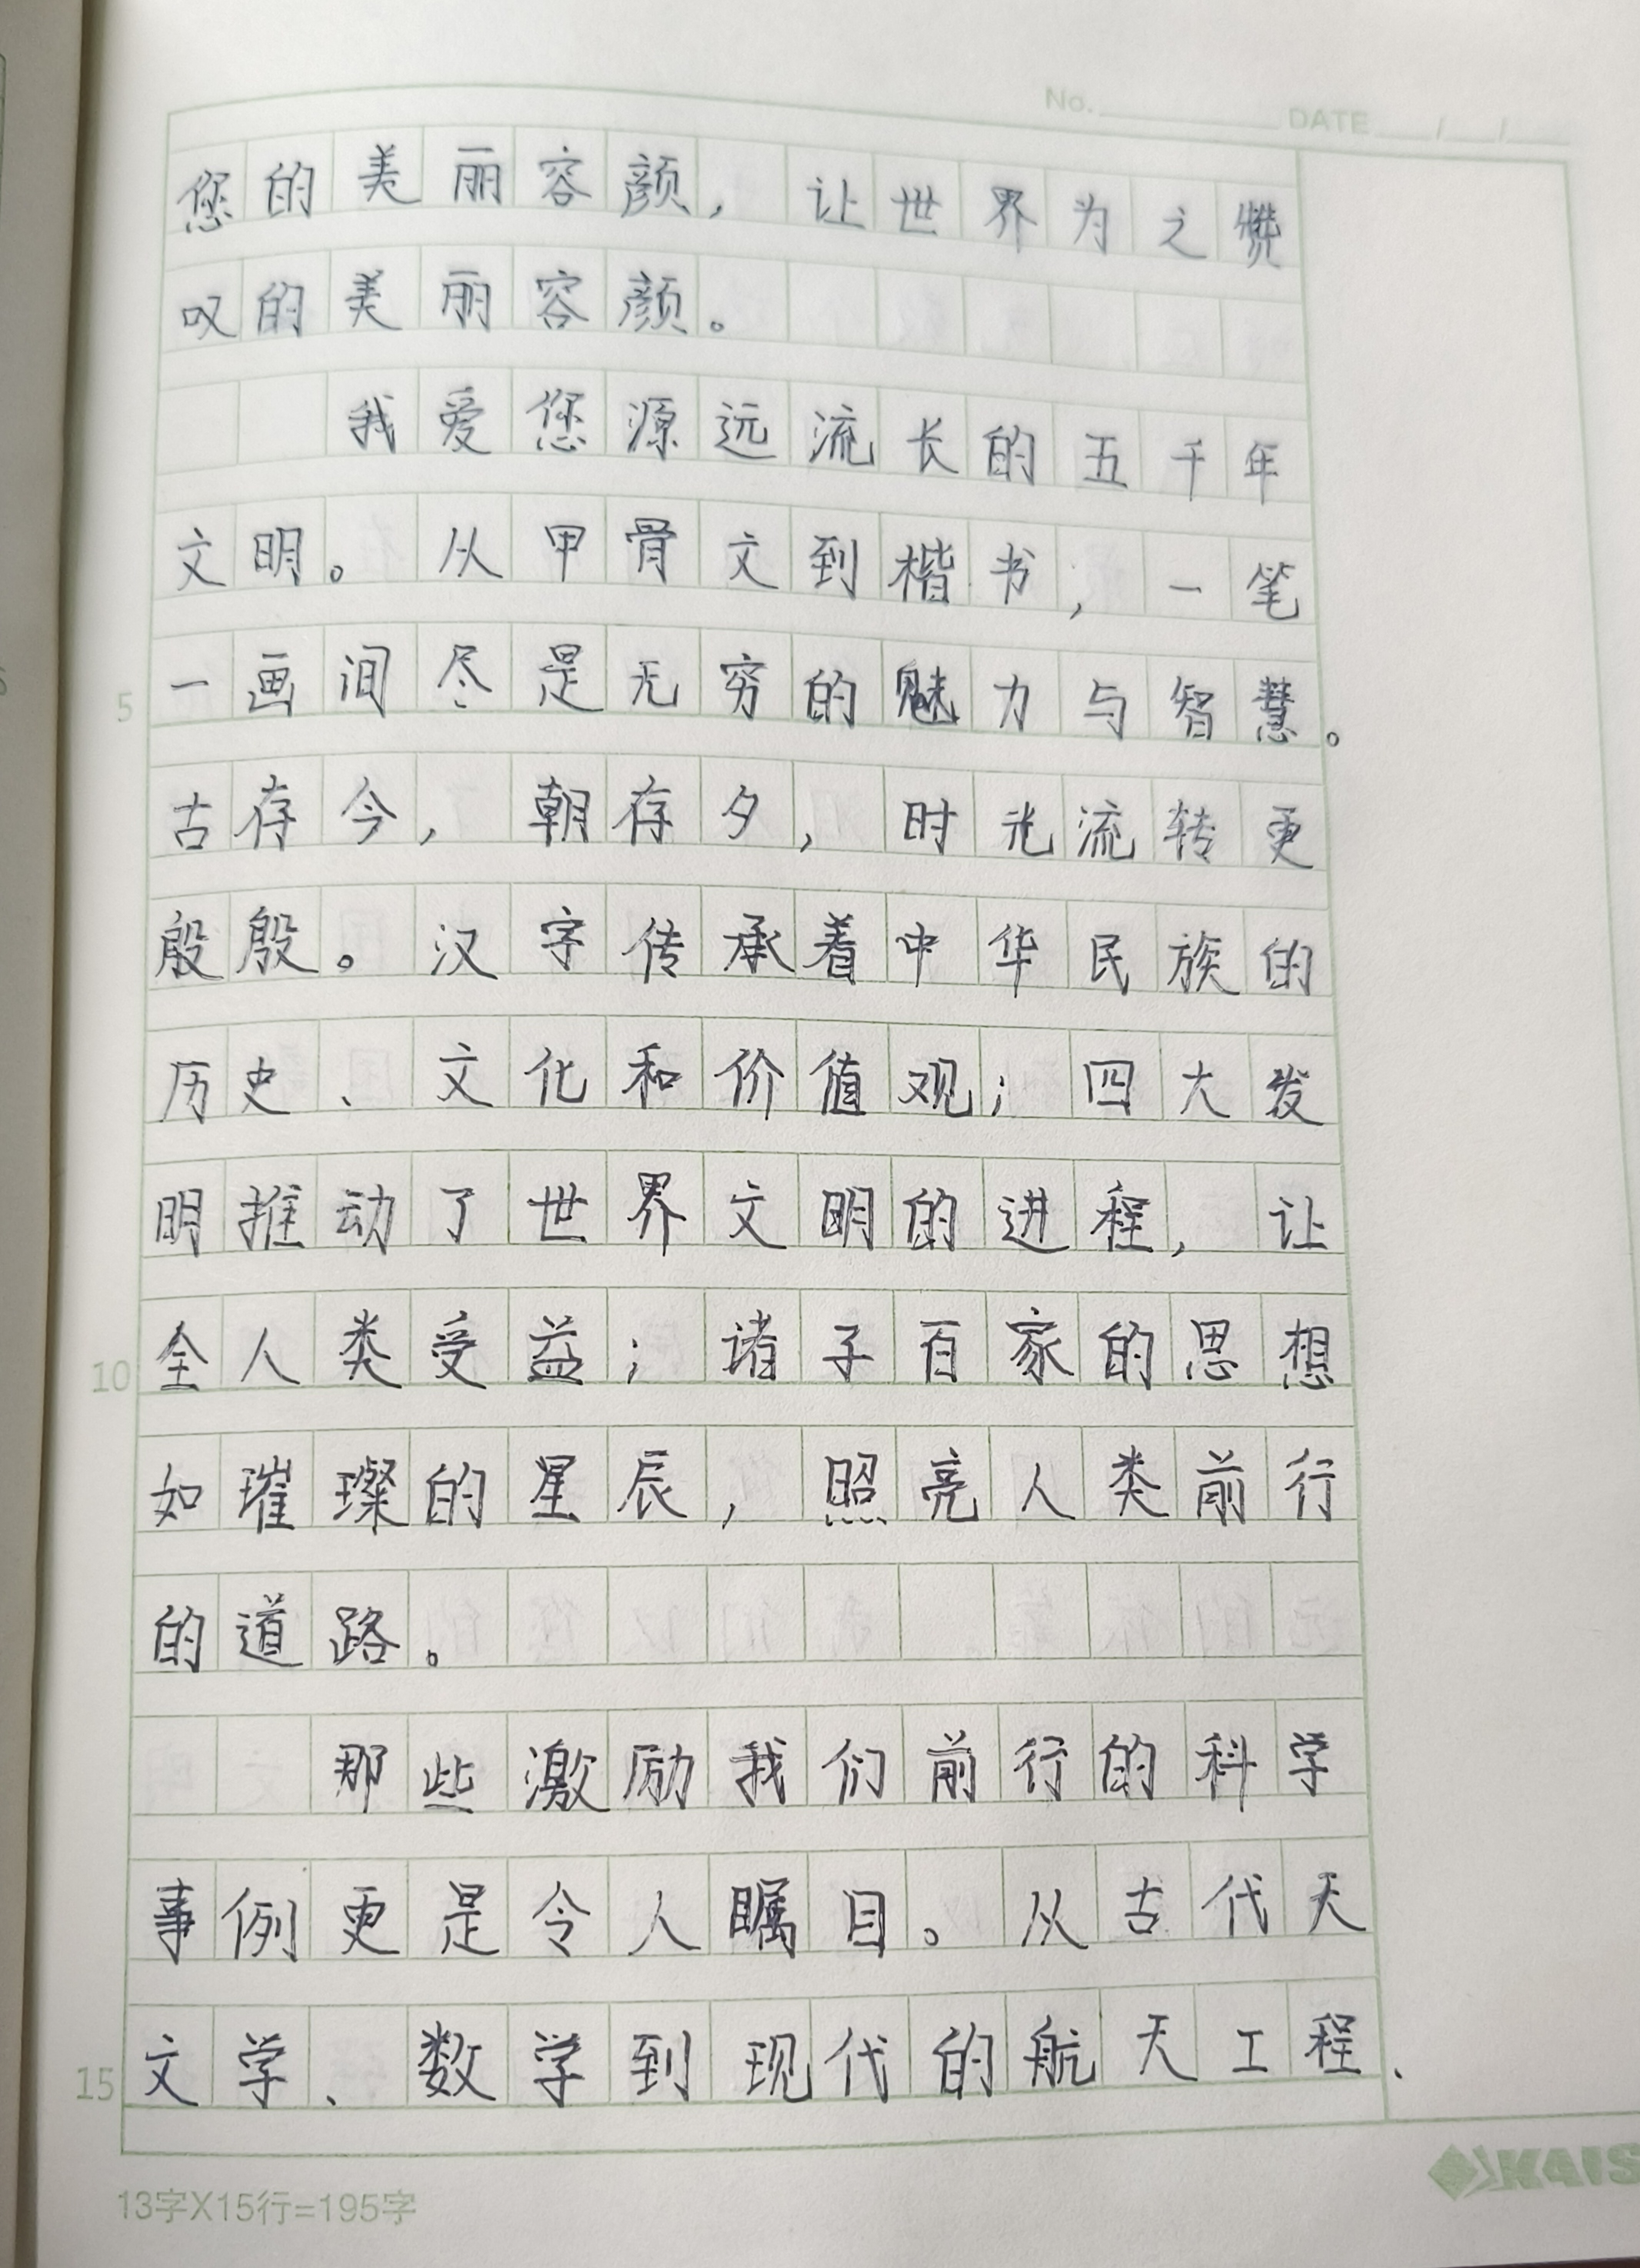 No. DATE / /
您的美丽容颜，让世界为之赞
叹的美丽容颜。
我爱您源远流长的五千年
文明。从甲骨文到楷书，一笔
5 一画间尽是无穷的魅力与智慧。
古存今，朝存夕，时光流转更
殷殷。汉字传承着中华民族的
历史、文化和价值观；四大发
明推动了世界文明的进程，让
10 全人类受益；诸子百家的思想
如璀璨的星辰，照亮人类前行
的道路。
那些激励我们前行的科学
事例更是令人瞩目。从古代天
15 文学、数学到现代的航天工程、
13字X15行=195字
KAIS